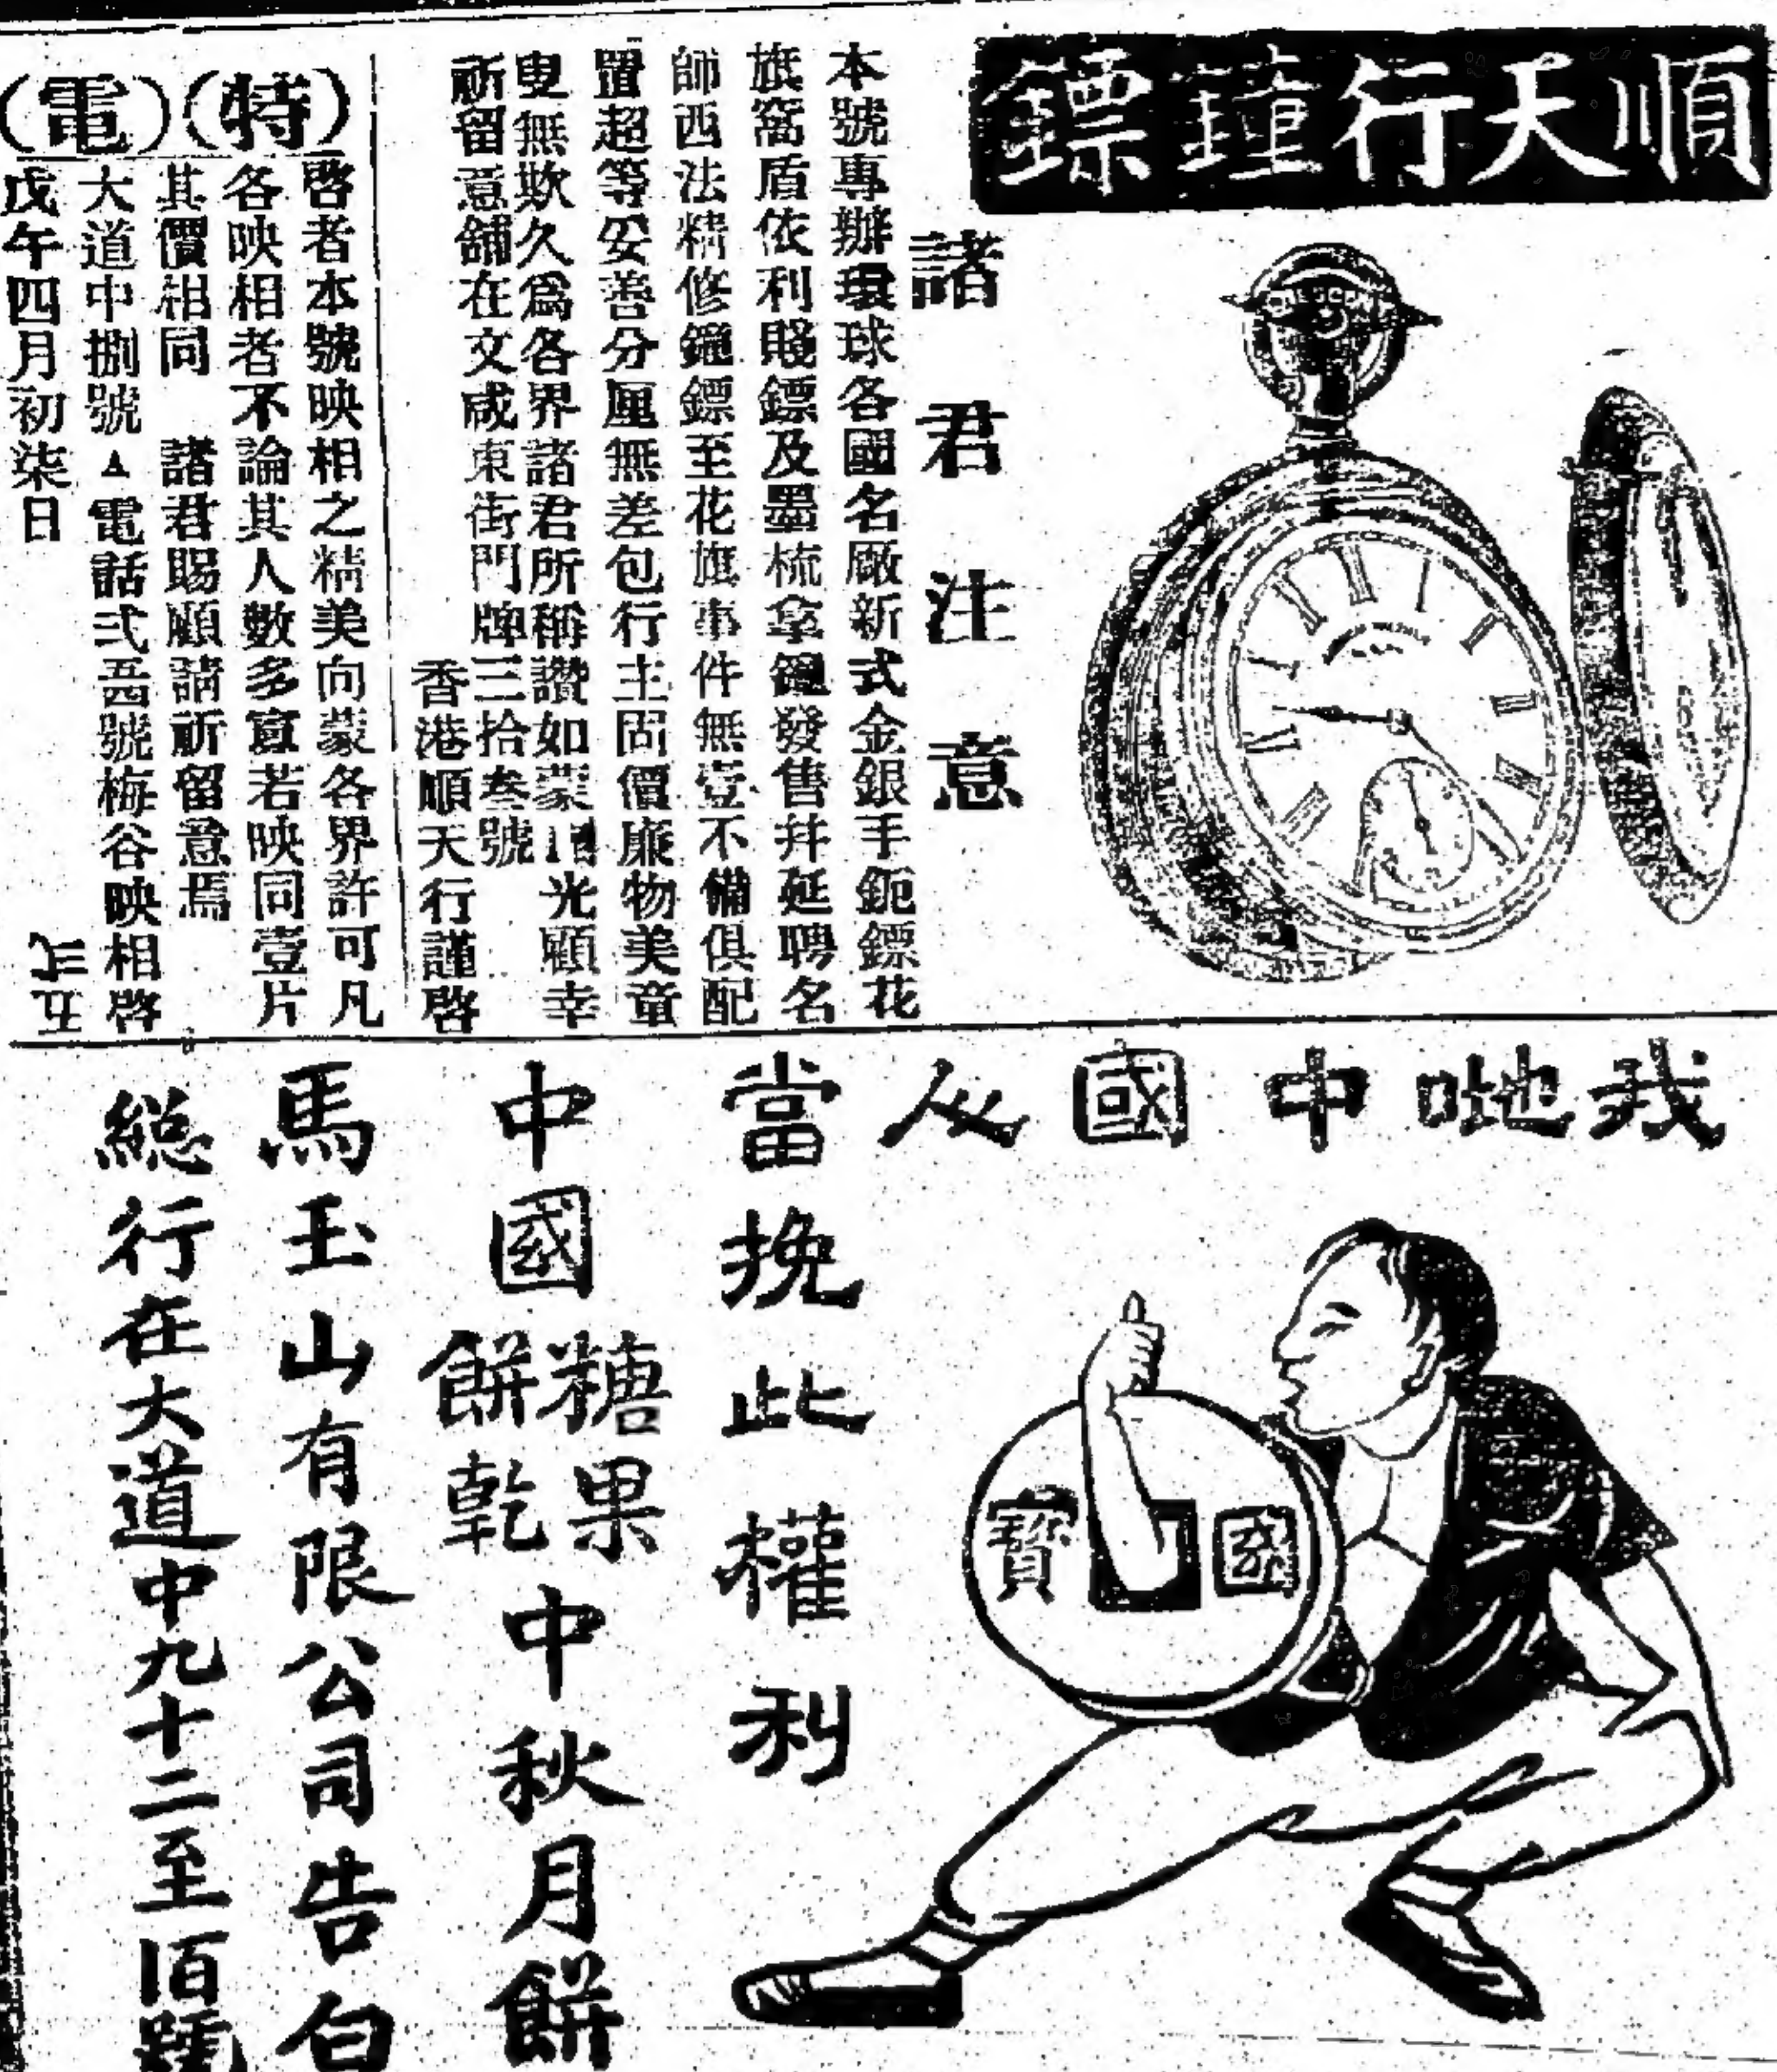 順天行鐘鏢
諸君注意
本號專辦環球各國名廠新式金銀手鈪鏢花
旗窩盾依利賤鏢及墨梳拿鐘發售幷延聘名
師西法精修鐘鏢至花旗事件無壹不備俱配
置超等妥善分厘無差包行主固價廉物美童
叟無欺久爲各界諸君所稱讚如蒙光顧幸
祈留意舖在文咸東街門牌三拾叁號
香港順天行謹啓
(特)(電)
啓者本號映相之精美向蒙各界許可凡
各映相者不論其人數多寡若映同壹片
其價相同　諸君賜顧請祈留意焉
大道中捌號▲電話弍吾號梅谷映相啓
戊午四月初柒日
我哋中國人
當挽此權利
中國糖果餅乾中秋月餅
馬玉山有限公司告白
總行在大道中九十二至佰號
國寶